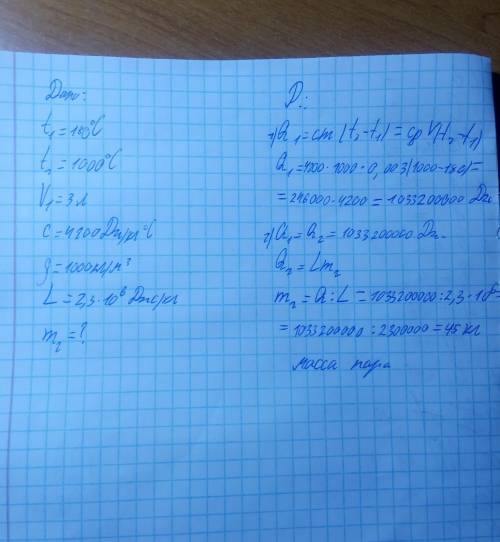 Дано:
t₁ = 180°C
t₂ = 1000°C
V₁ = 3 л
c = 4200 Дж/кг°C
ρ = 1000 кг/м³
L = 2,3 · 10⁶ Дж/кг
m₂ = ?
Р.:
1) Q₁ = cm (t₂ - t₁) = cρV(t₂ - t₁)
Q₁ = 4200 · 1000 · 0,003(1000 - 180) =
= 246000 · 4200 = 1033200000 Дж
2) Q₁ = Q₂ = 1033200000 Дж.
Q₂ = Lm₂
m₂ = Q : L = 1033200000 : 2,3 · 10⁶ =
= 1033200000 : 2300000 = 45 кг
масса пара